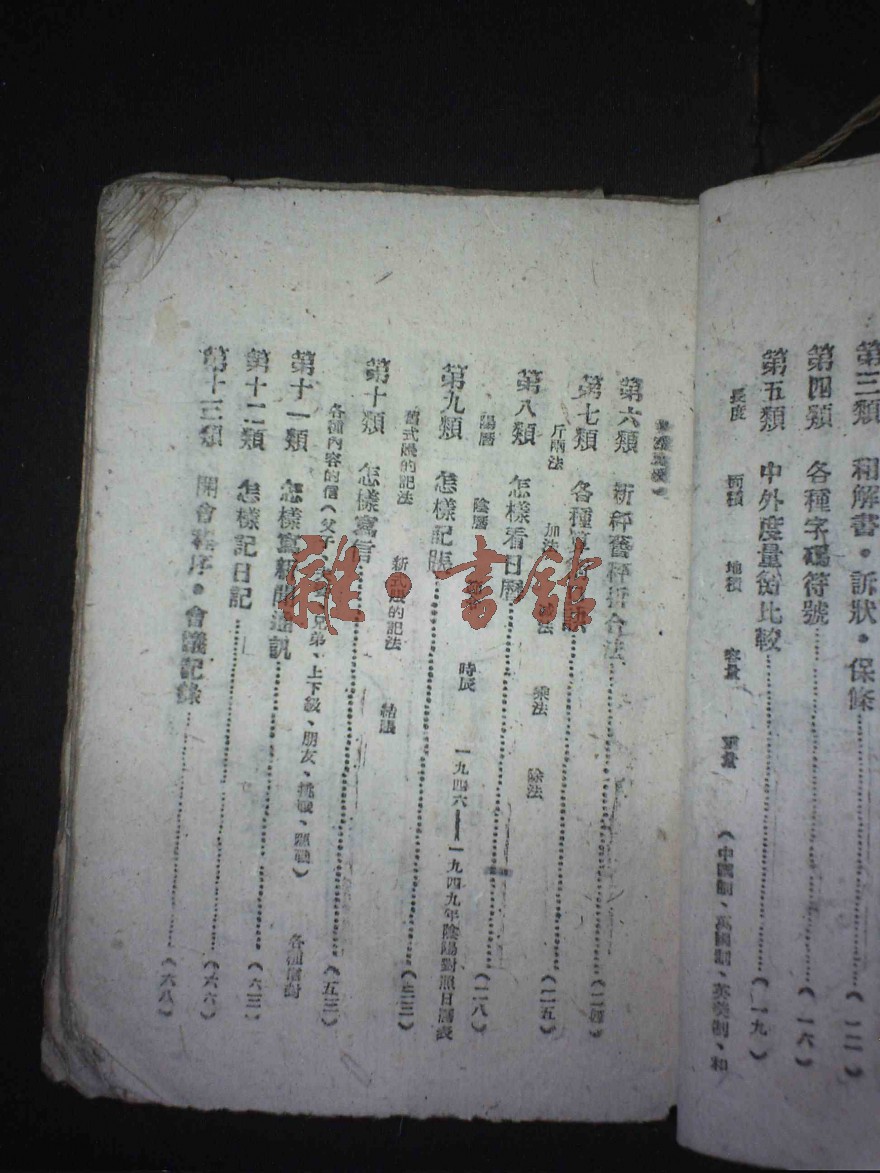 第三類　和解書・訴狀・保條……（一二）
第四類　各種字碼符號……（一六）
第五類　中外度量衡比較……（一九）
長度　面積　地積　容量　重量　（中國制、萬國制、英美制、和
第六類　新秤舊秤折合法……（二四）
第七類　各種算術口訣……（二五）
斤兩法　加法　減法　乘法　除法
第八類　怎樣看日曆……（二八）
陽曆　陰曆　時辰　一九四六——一九四九年陰陽對照日曆表
第九類　怎樣記賬……（三三）
舊式賬的記法　新式賬的記法　結賬
第十類　怎樣寫信……（五三）
各種內容的信（父子、兄弟、上下級、朋友、挑戰、應戰）
第十一類　怎樣寫新聞通訊……（六三）
第十二類　怎樣記日記……（六六）
第十三類　開會程序・會議記錄……（六八）
雜・書館